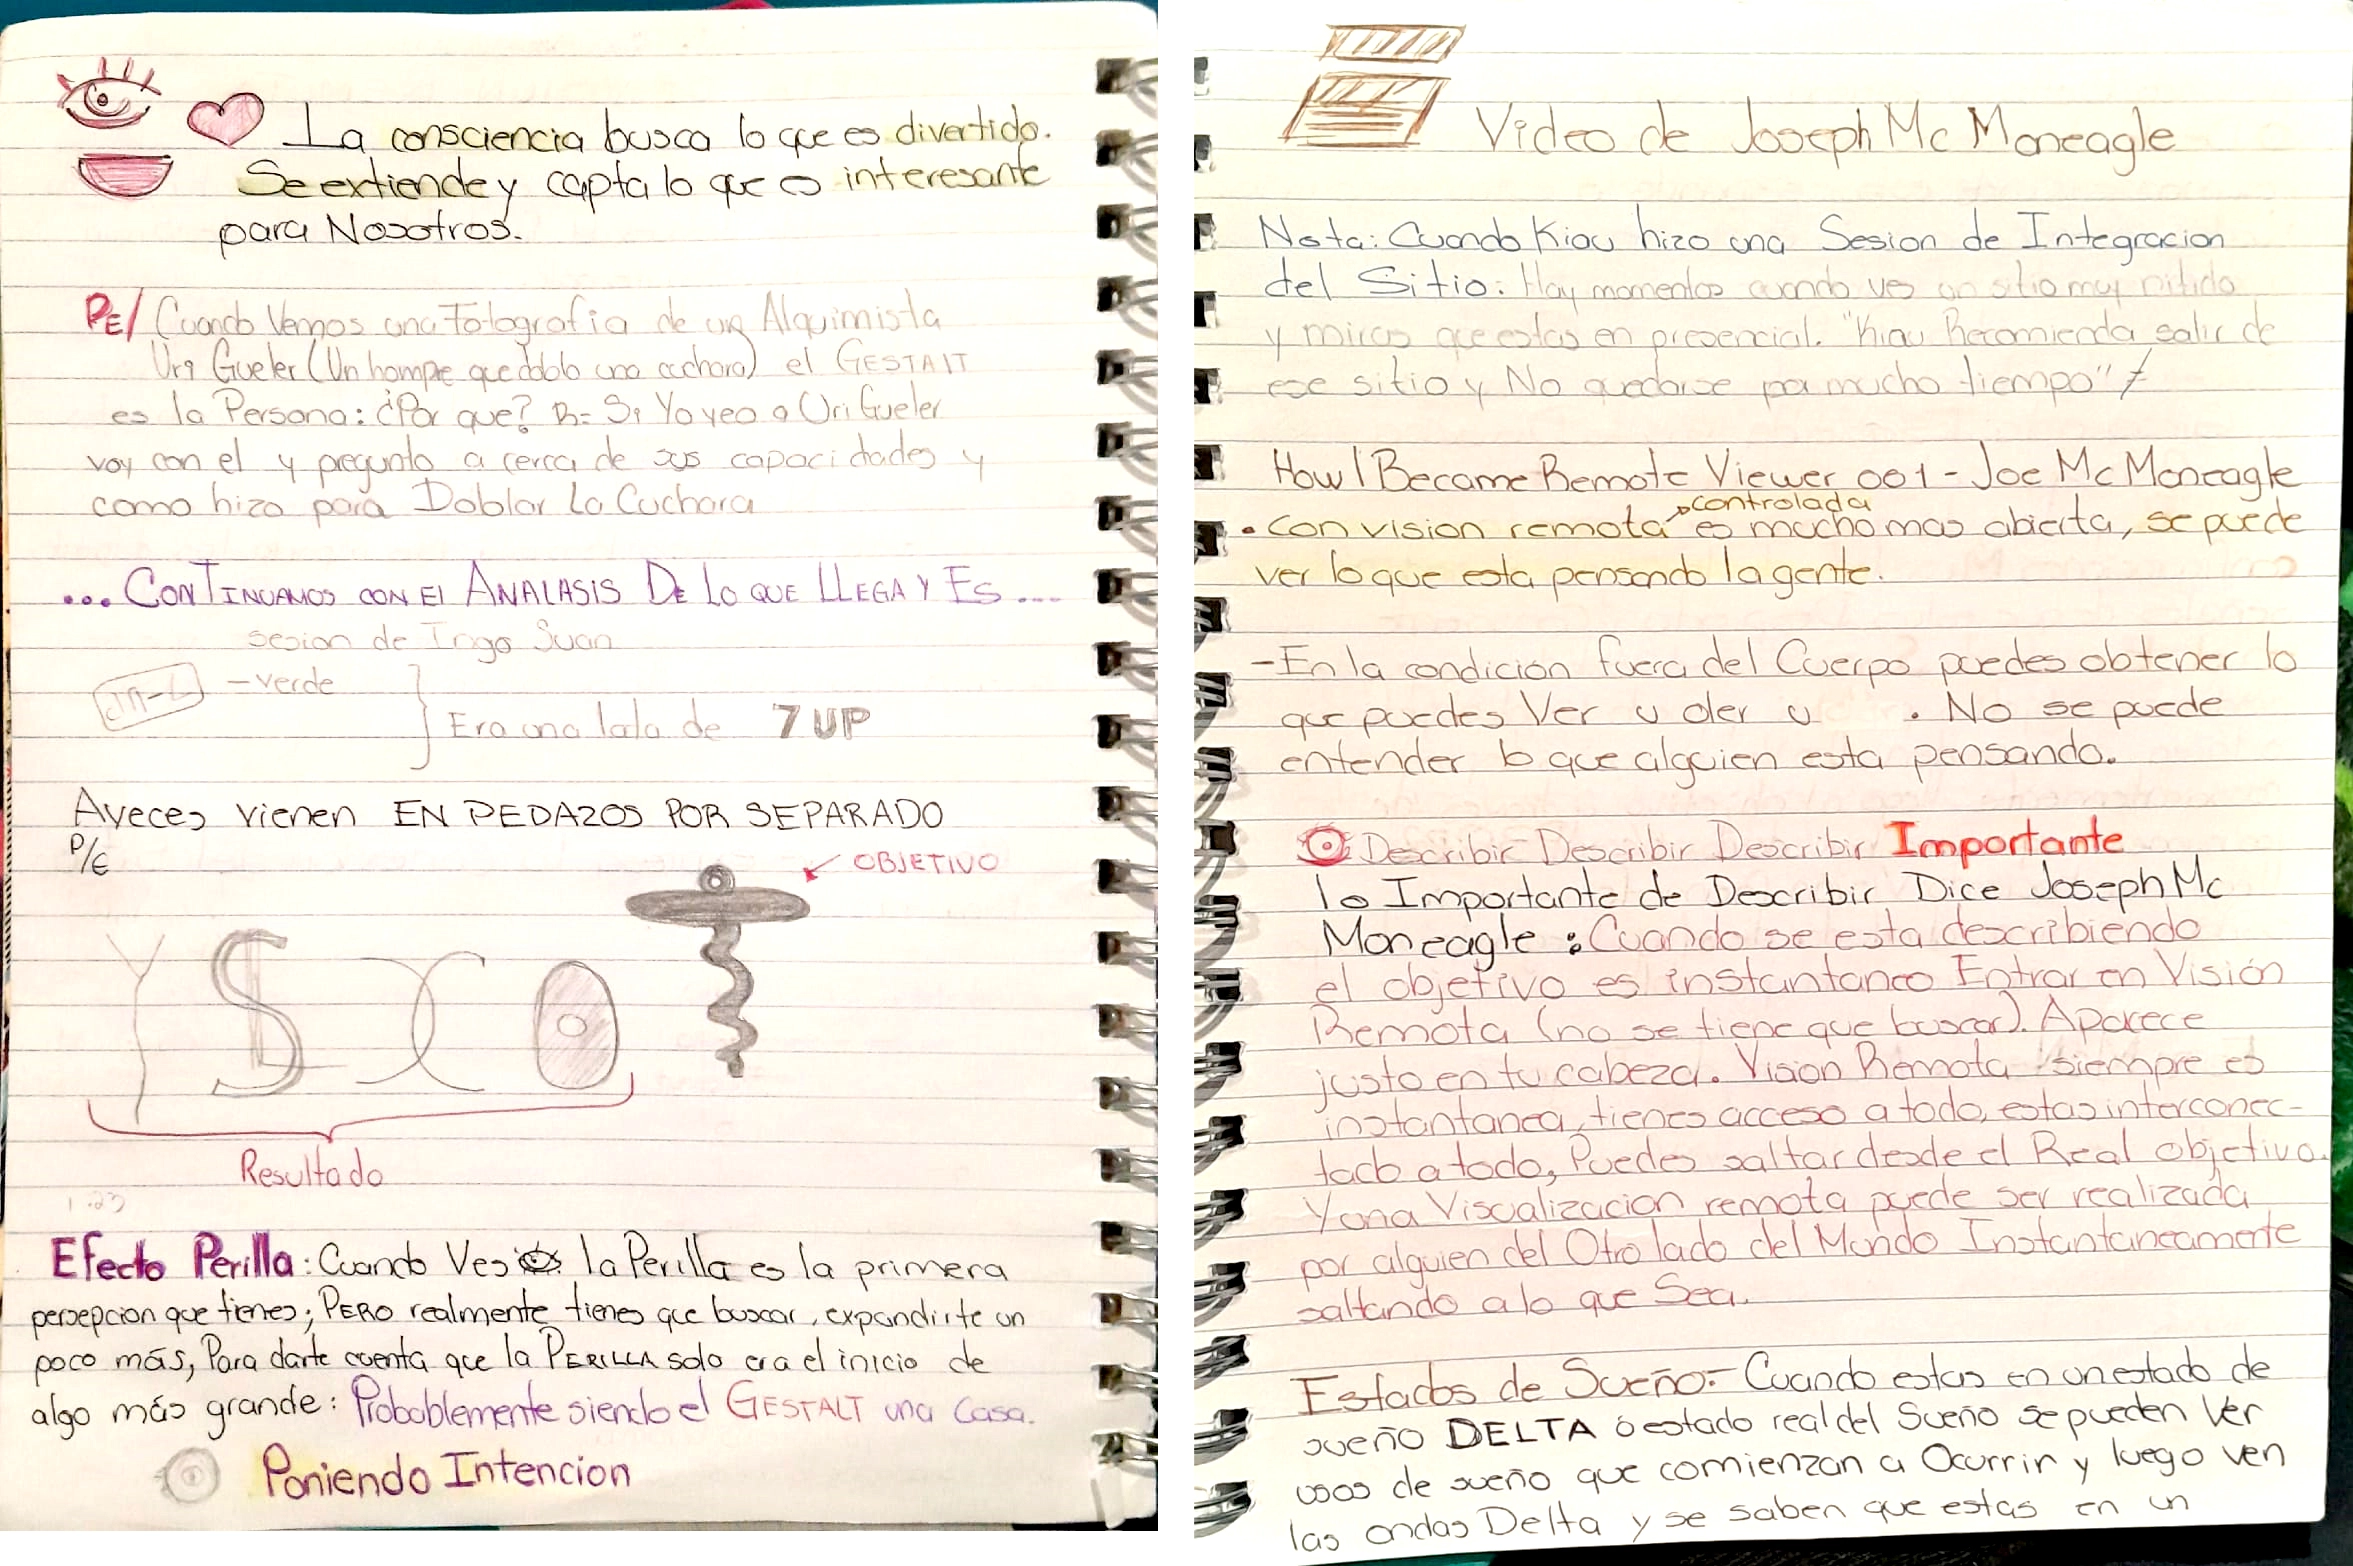 La consciencia busca lo que es divertido.
Se extiende y capta lo que es interesante
para Nosotros.
PE/ Cuando Vemos una Fotografia de un Alquimista
Uri Gueler (Un hompre que doblo una cuchara) el GESTALT
es la Persona: ¿Por que? R= Si Yo veo a Uri Gueler
voy con el y pregunto a cerca de sus capacidades y
como hizo para Doblar La Cuchara
... CONTINUAMOS CON El ANALASIS DE LO QUE LLEGA Y ES ...
sesion de Ingo Suan
-verde
Era una lata de 7 UP
Aveces vienen EN PEDAZOS POR SEPARADO
P/E
OBJETIVO
Resultado
1.23
Efecto Perilla: Cuando Ves la Perilla es la primera
persepcion que tienes; PERO realmente tienes que buscar, expandirte un
poco más, Para darte cuenta que la PERILLA solo era el inicio de
algo más grande: Probablemente siendo el GESTALT una Casa.
Poniendo Intencion
Video de Joseph Mc Moneagle
Nota: Cuando Kiau hizo una Sesion de Integracion
del Sitio: Hay momentos cuando ves un sitio muy nitido
y miras que estas en presencial. "Kiau Recomienda salir de
ese sitio y No quedarse por mucho tiempo"
How I Became Remote Viewer 001 - Joe Mc Moneagle
controlada
• Con vision remota es mucho mas abierta, se puede
ver lo que esta pensando la gente.
- En la condición fuera del Cuerpo puedes obtener lo
que puedes Ver u oler u . No se puede
entender lo que alguien esta pensando.
Describir Describir Describir Importante
lo Importante de Describir Dice Joseph Mc
Moneagle: Cuando se esta describiendo
el objetivo es instantaneo Entrar en Visión
Remota (no se tiene que buscar). Aparece
justo en tu cabeza. Vision Remota siempre es
instantanea, tienes acceso a todo, estas interconec-
tado a todo, Puedes saltar desde el Real objetivo.
Y una Visualizacion remota puede ser realizada
por alguien del Otro lado del Mundo Instantaneamente
saltando a lo que Sea.
Estados de Sueño:- Cuando estas en un estado de
sueño DELTA ó estado real del Sueño se pueden Ver
usos de sueño que comienzan a Ocurrir y luego ven
las ondas Delta y se saben que estas en un